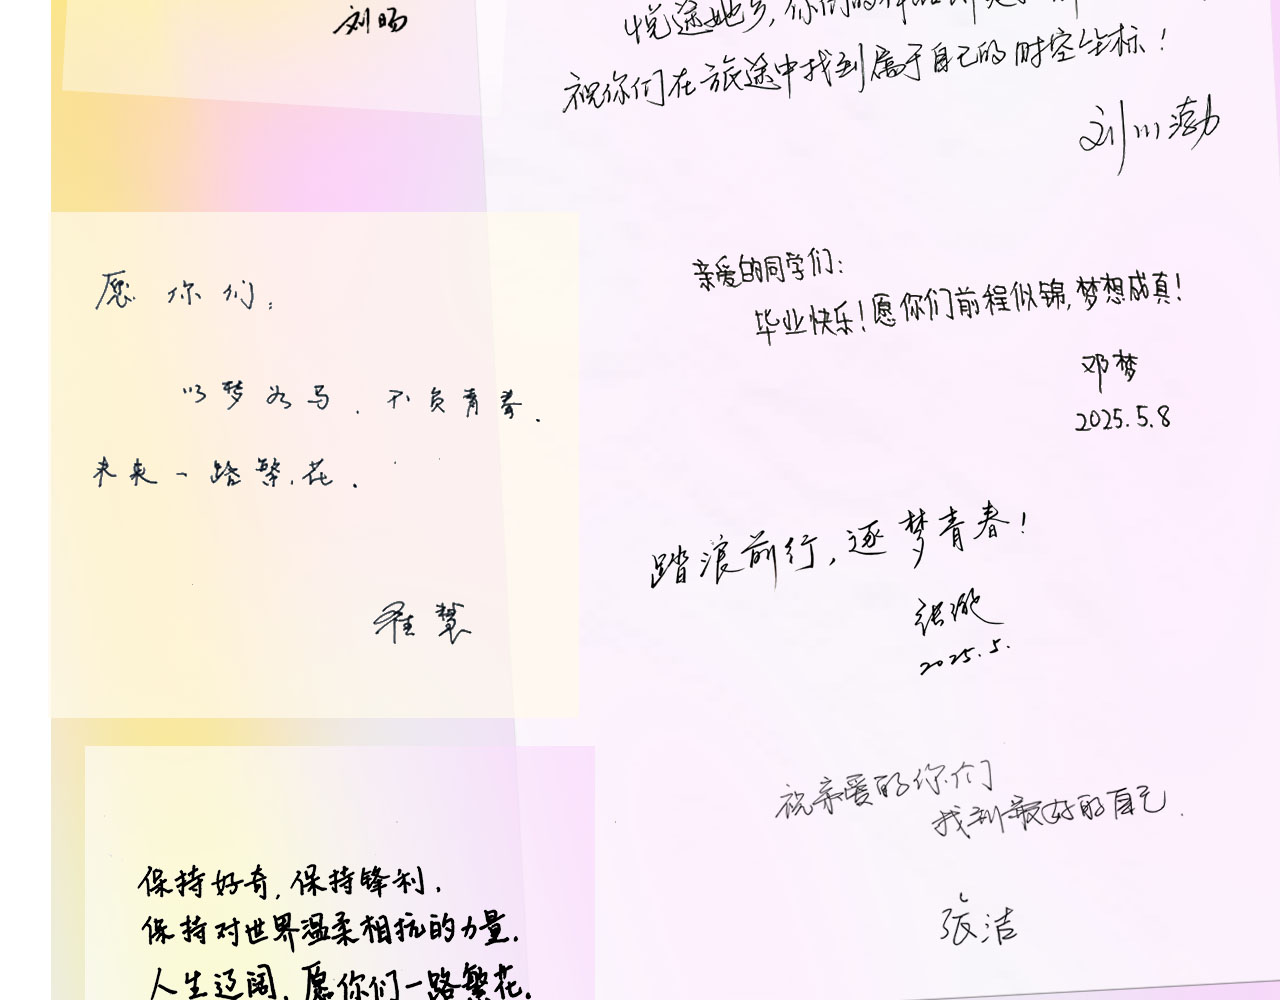 刘旸
悦途她乡,你们的
祝你们在旅途中找到属于自己的时空坐标!
刘川渤
愿你们:
以梦为马.不负青春.
未来一路繁花.
崔慧
亲爱的同学们:
毕业快乐!愿你们前程似锦,梦想成真!
邓梦
2025.5.8
踏浪前行,逐梦青春!
2025.5.
祝亲爱的你们
找到最好的自己.
张洁
保持好奇,保持锋利.
保持对世界温柔相抗的力量.
人生辽阔,愿你们一路繁花.